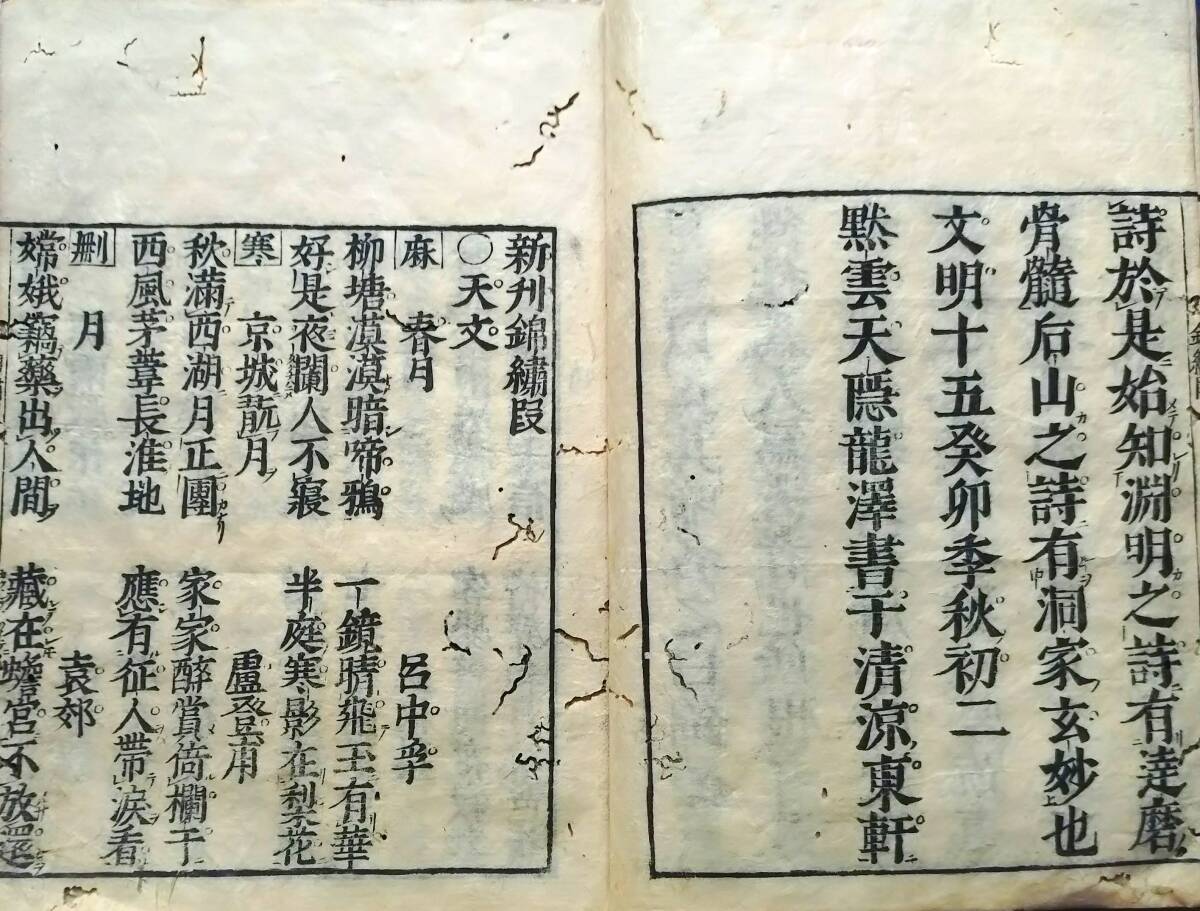 詩於是始知淵明之詩有達磨
骨髓后山之詩有洞家玄妙也
文明十五癸卯季秋初二
黙雲天隠龍澤書于清涼東軒
新刋錦繡段
〇天文
麻 春月 呂中孚
柳塘漠漠暗啼鴉 一鏡晴飛玉有華
好是夜闌人不寢 半庭寒影在梨花
寒 京城翫月 盧登甫
秋滿西湖月正團 家家醉賞倚欄干
西風茅葦長淮地 應有征人帶淚看
刪 月 袁郊
嫦娥竊藥出人間 藏在蟾宮不放還